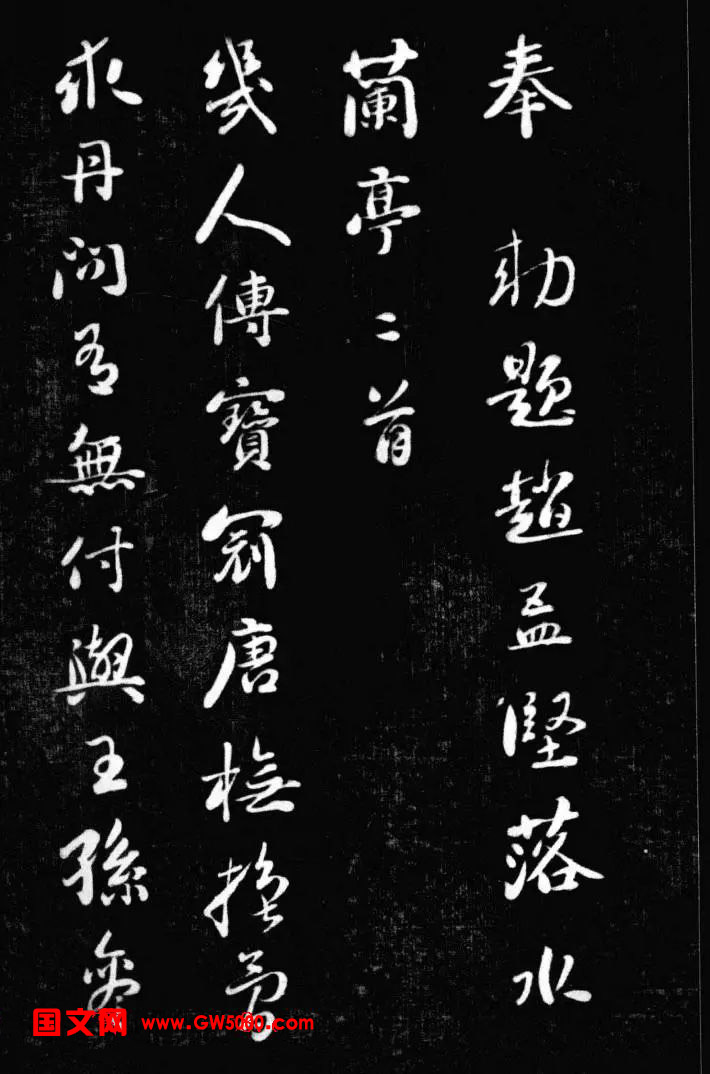 奉 勅題趙孟堅落水
蘭亭二首
幾人傳寶冠唐橅
求丹問有無付與王孫
国文网 www.GW5000.com